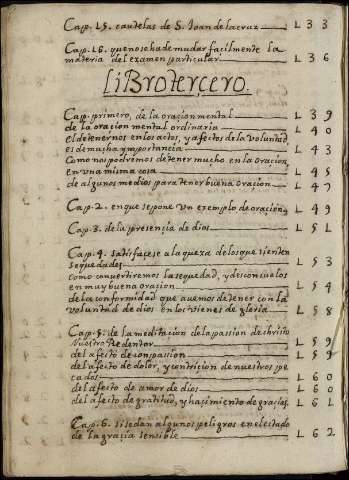 Cap. L5. cautelas de S. Ioan de la cruz — L 3 3
Cap. L6. que no se ha de mudar facilmente la
materia del examen particular — L 3 6
LiBro terçero.
Cap. primero, de la oracion mental — L 3 9
de la oracion mental ordinaria — L 4 0
el detenernos en los actos, y afectos de la voluntad,
es de mucha ymportancia — L 4 3
Como nos podremos detener mucho en la oracion,
en vna misma cosa — L 4 5
de algunos medios para tener buena oracion — L 4 7
Cap. 2. en que se pone vn exemplo de oracion, L 4 9
Cap. 3. de la presençia de dios — L 5 L
Cap. 4. satisfaçese a la queza de los que sienten
sequedades — L 5 3
como convertiremos la sequedad, y desconsuelos
en muy buena oracion — L 5 4
de la conformidad que auemos de tener con la
voluntad de dios en los vienes de gloria — L 5 8
Cap. 5. de la meditacion de la passion de christo
Nuestro Redentor — L 5 9
del afecto de conpassion — L 5 9
del afecto de dolor, y contricion de nuestros pe
cados — L 6 0
del afecto de amor de dios — L 6 0
del afecto de gratitud, y haçimiento de graçias, L 6 L
Cap. 6. si se dan algunos peligros en el estado
de la graçia sensible — L 6 2